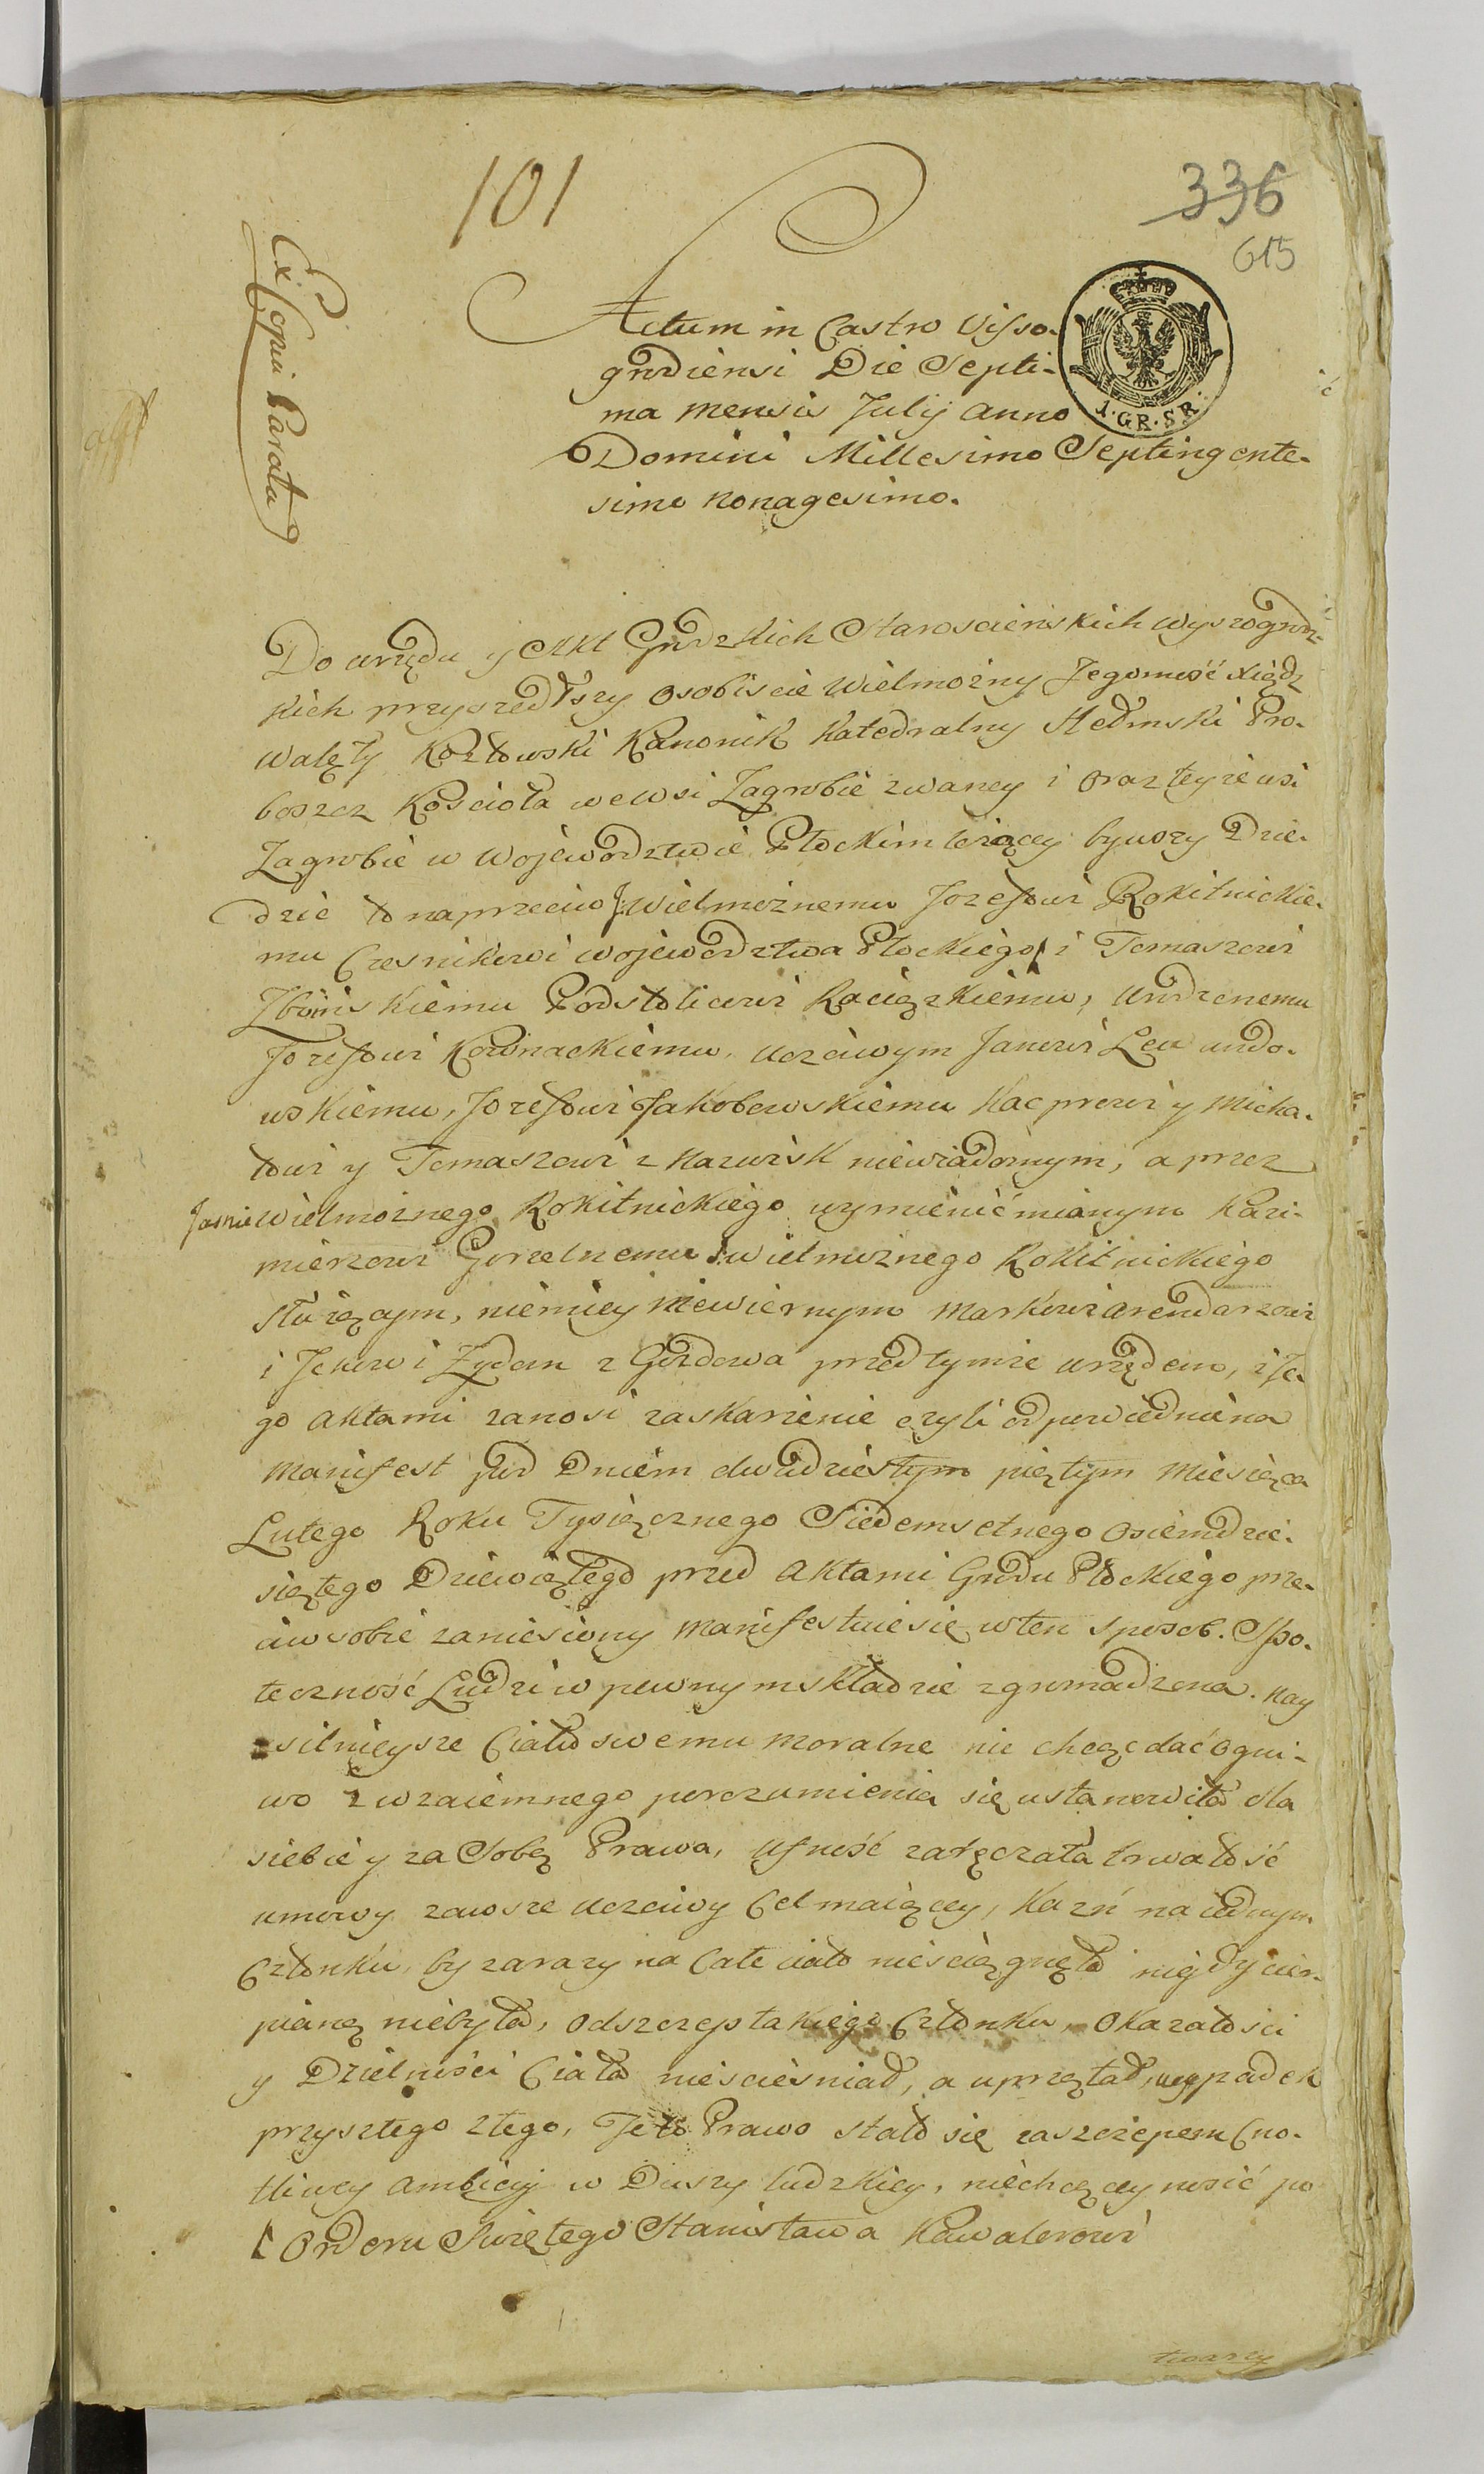 101
336
615
Ex Copia Parata
1. GR. S R.
Actum in Castro Visso-
grodiensi Die Septi-
ma mensis Julij anno
Domini Millesimo Septingente-
simo nonagesimo.
Do urzędu y Akt Grodzkich Starościńskich wyszogrodz-
kich przyszedłszy osobiscie Wielmożny Jegomość Xiądz
Walęty Kozłowski Kanonik Katedralny Pro-
boszcz Kościoła we wsi Zagrobie zwaney i oraz teyże wsi
Zagrobie w Wojewodztwie Płockim leżący bywszy Dzie-
dzic to naprzeciw J. Wielmożnemu Jozefowi Rokitnickie-
mu Czesnikowi wojewodztwa Płockiego i Tomaszowi
Zboińskiemu Podstolicowi Raciązkiemu, Urodzonemu
Jozefowi Kownackiemu, uczciwym Janowi Lewando-
wskiemu, Jozefowi Jakobowskiemu Kacprowi y Micha-
łowi y Tomaszowi z Nazwisk niewiadomym, a przez
Jasnie Wielmożnego Rokitnickiego wymienić mianym Kazi-
mierzowi Gorzelnemu J. wielmożnego Rokitnickiego
służącym, niemiey niewiernym Markowi arendarzowi
i Jckowi Żydom z Gozdowa przed tymże urzędem, i Je-
go aktami zanosi zaskarzenie czyli odpowiednie na
Manifest pod Dniem dwudziestym piątym Miesiąca
Lutego Roku Tysiącznego Siedemsetnego osiemdzie-
siątego Dziewiątego przed Aktami Grodu Płockiego prze-
ciw sobie zaniesiony manifestuie się w ten sposob. Spo-
łeczność Ludzi w pewnym składzie zgromadzona. nay
silnieysze Ciału swemu moralne nie chcąc dać ogni-
wo z wzaiemnego porozumienia się ustanowiła dla
siebie y za Sobą Prawa, ufność zaręczała trwałość
umowy zawsze uczciwy Cel maiący, Kazń na iednym
Członku, by zarazy na Całe ciało nieściągnęła nigdy cier-
pianą niebyła, odszczep takiego Członka, okazałości
y Dzielności Ciała nieścieśniał, a uprzątał, wypadek
przyszłego złego, Te to Prawo stało się zaszczepem Cno-
tliwey ambicyi w Duszy ludzkiey, niechcący nosić po
Orderu Swiętego Stanisława Kawalerowi
twarzy